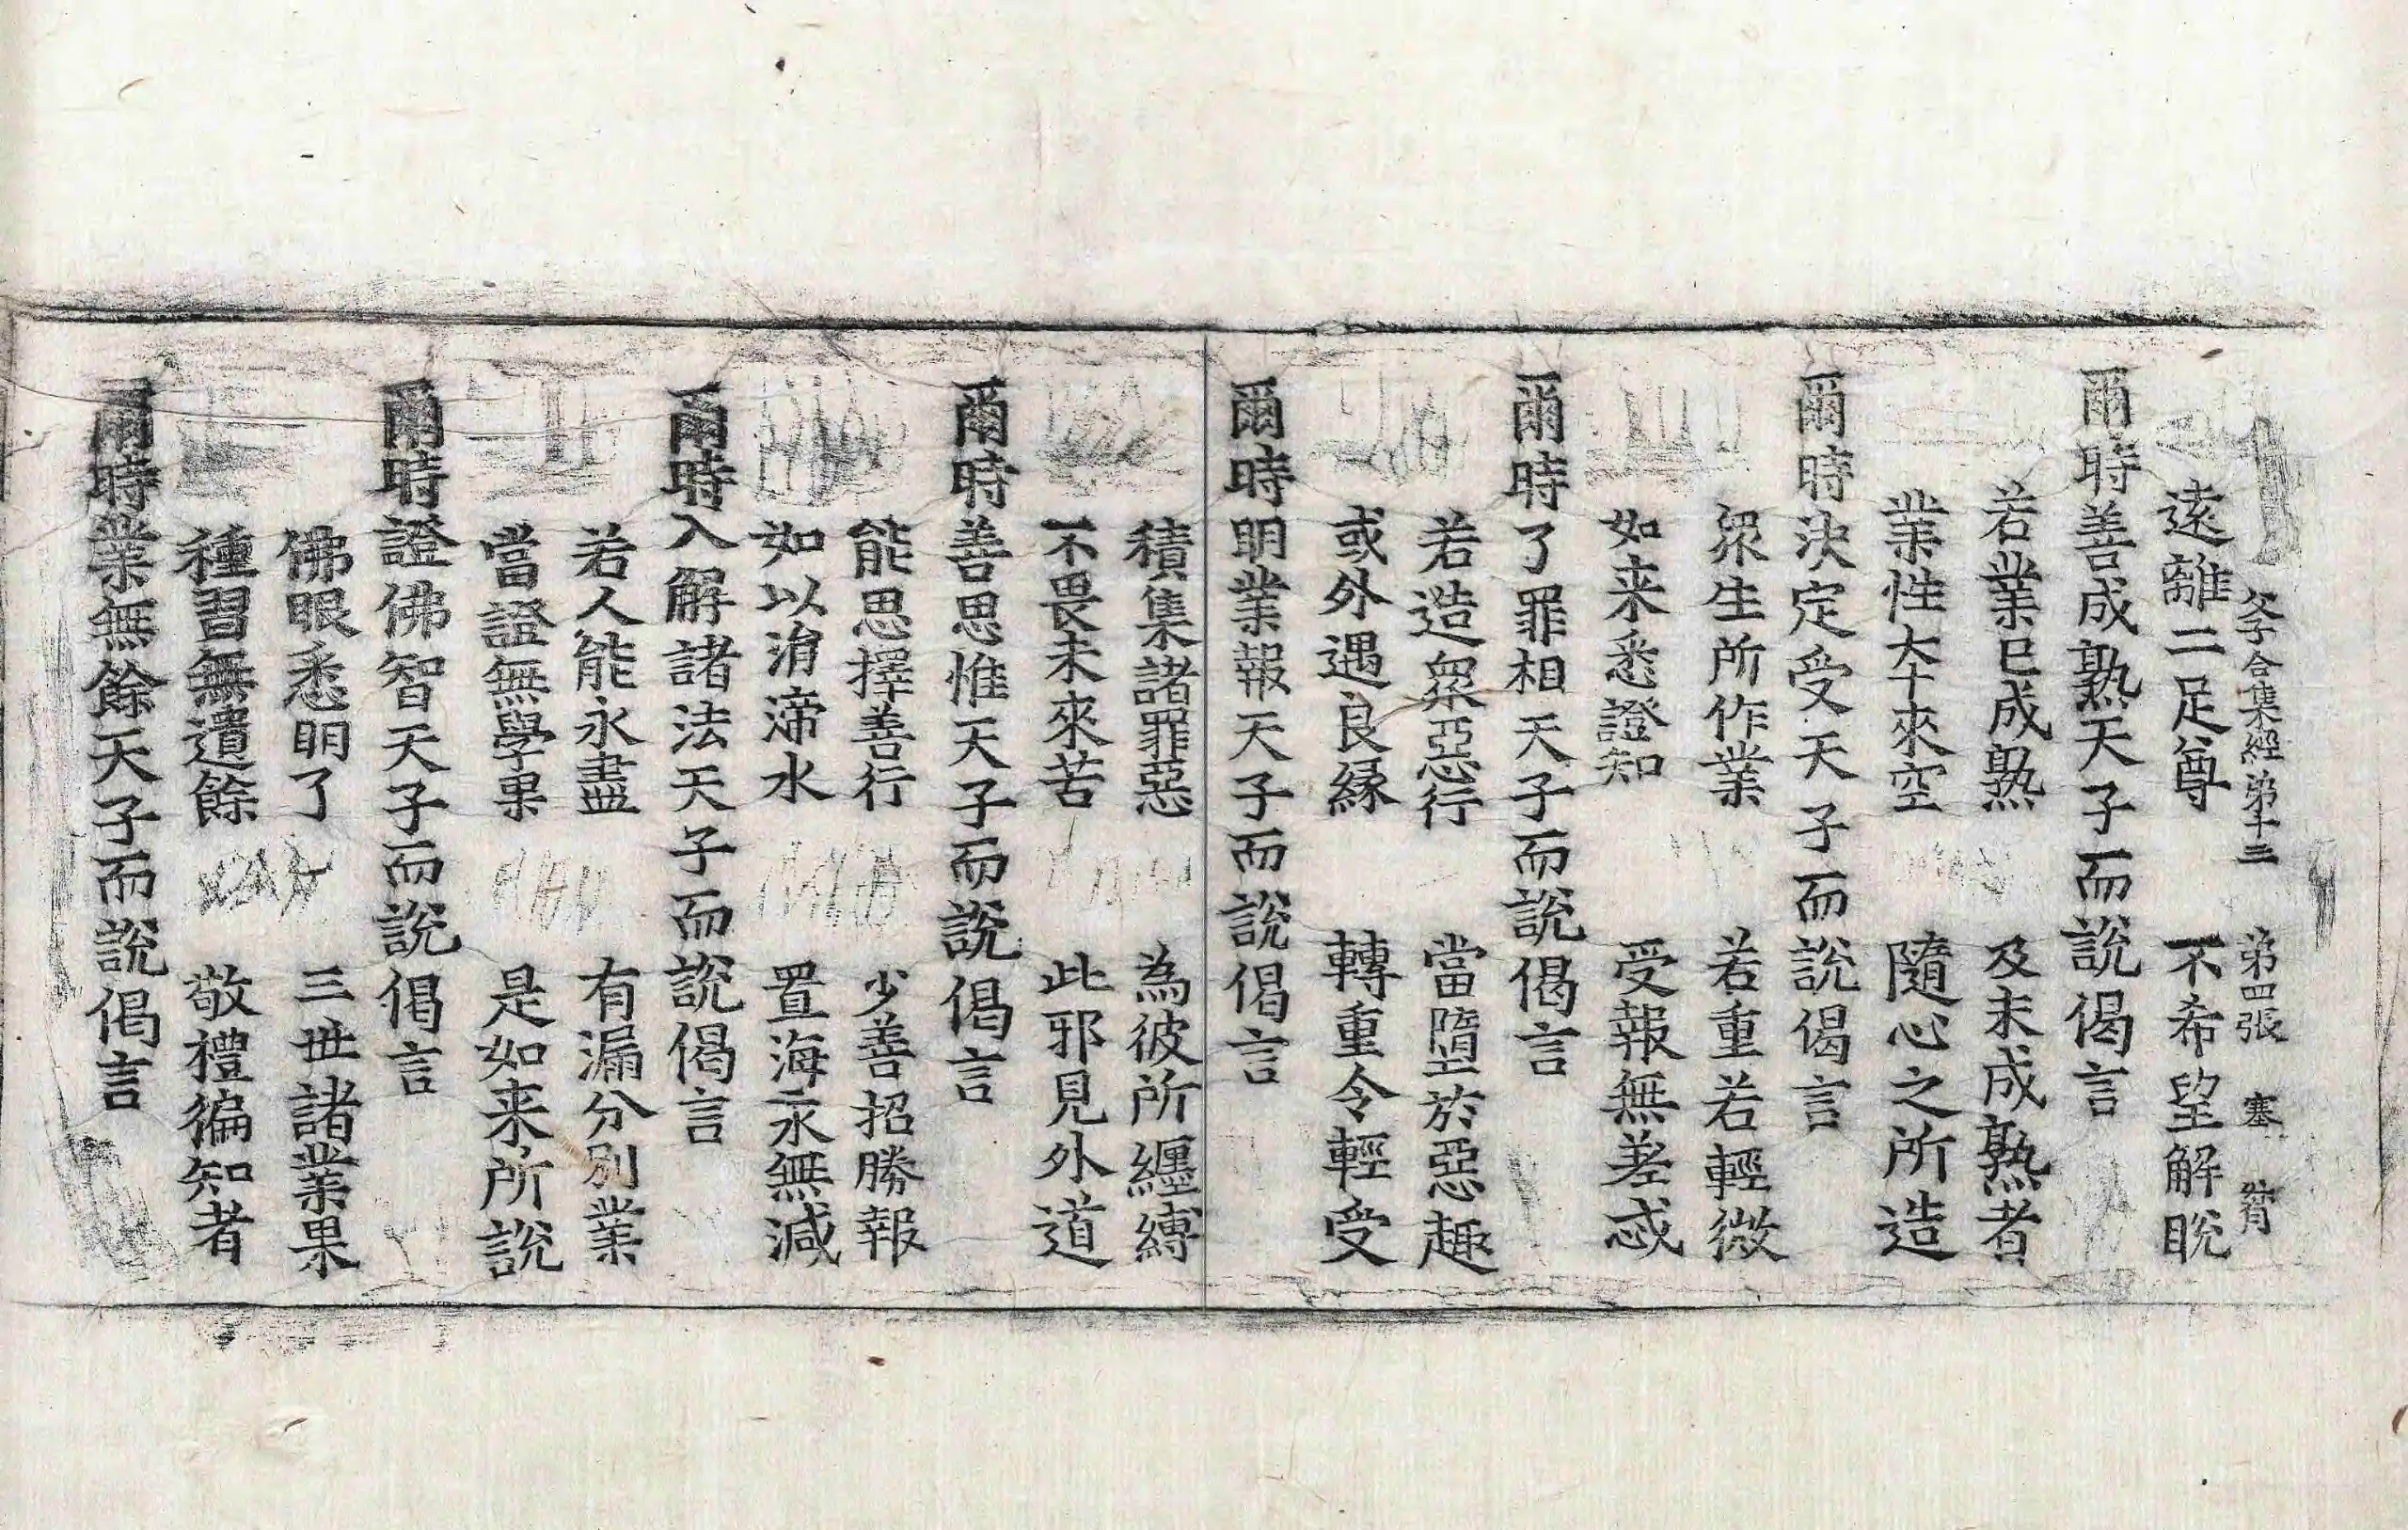 父子合集經第十三　第四張　塞
遠離二足尊　不希望解脫
爾時善成熟天子而說偈言
若業已成熟　及未成熟者
業性本來空　隨心之所造
爾時決定受天子而說偈言
衆生所作業　若重若輕微
如来悉證知　受報無差忒
爾時了罪相天子而說偈言
若造衆惡行　當墮於惡趣
或外遇良緣　轉重令輕受
爾時明業報天子而說偈言
積集諸罪惡　為彼所纏縛
不畏未來苦　此邪見外道
爾時善思惟天子而說偈言
能思擇善行　少善招勝報
如以涓滴水　置海永無減
爾時入解諸法天子而說偈言
若人能永盡　有漏分別業
當證無學果　是如来所說
爾時證佛智天子而說偈言
佛眼悉明了　三世諸業果
種習無遺餘　敬禮徧知者
爾時業無餘天子而說偈言